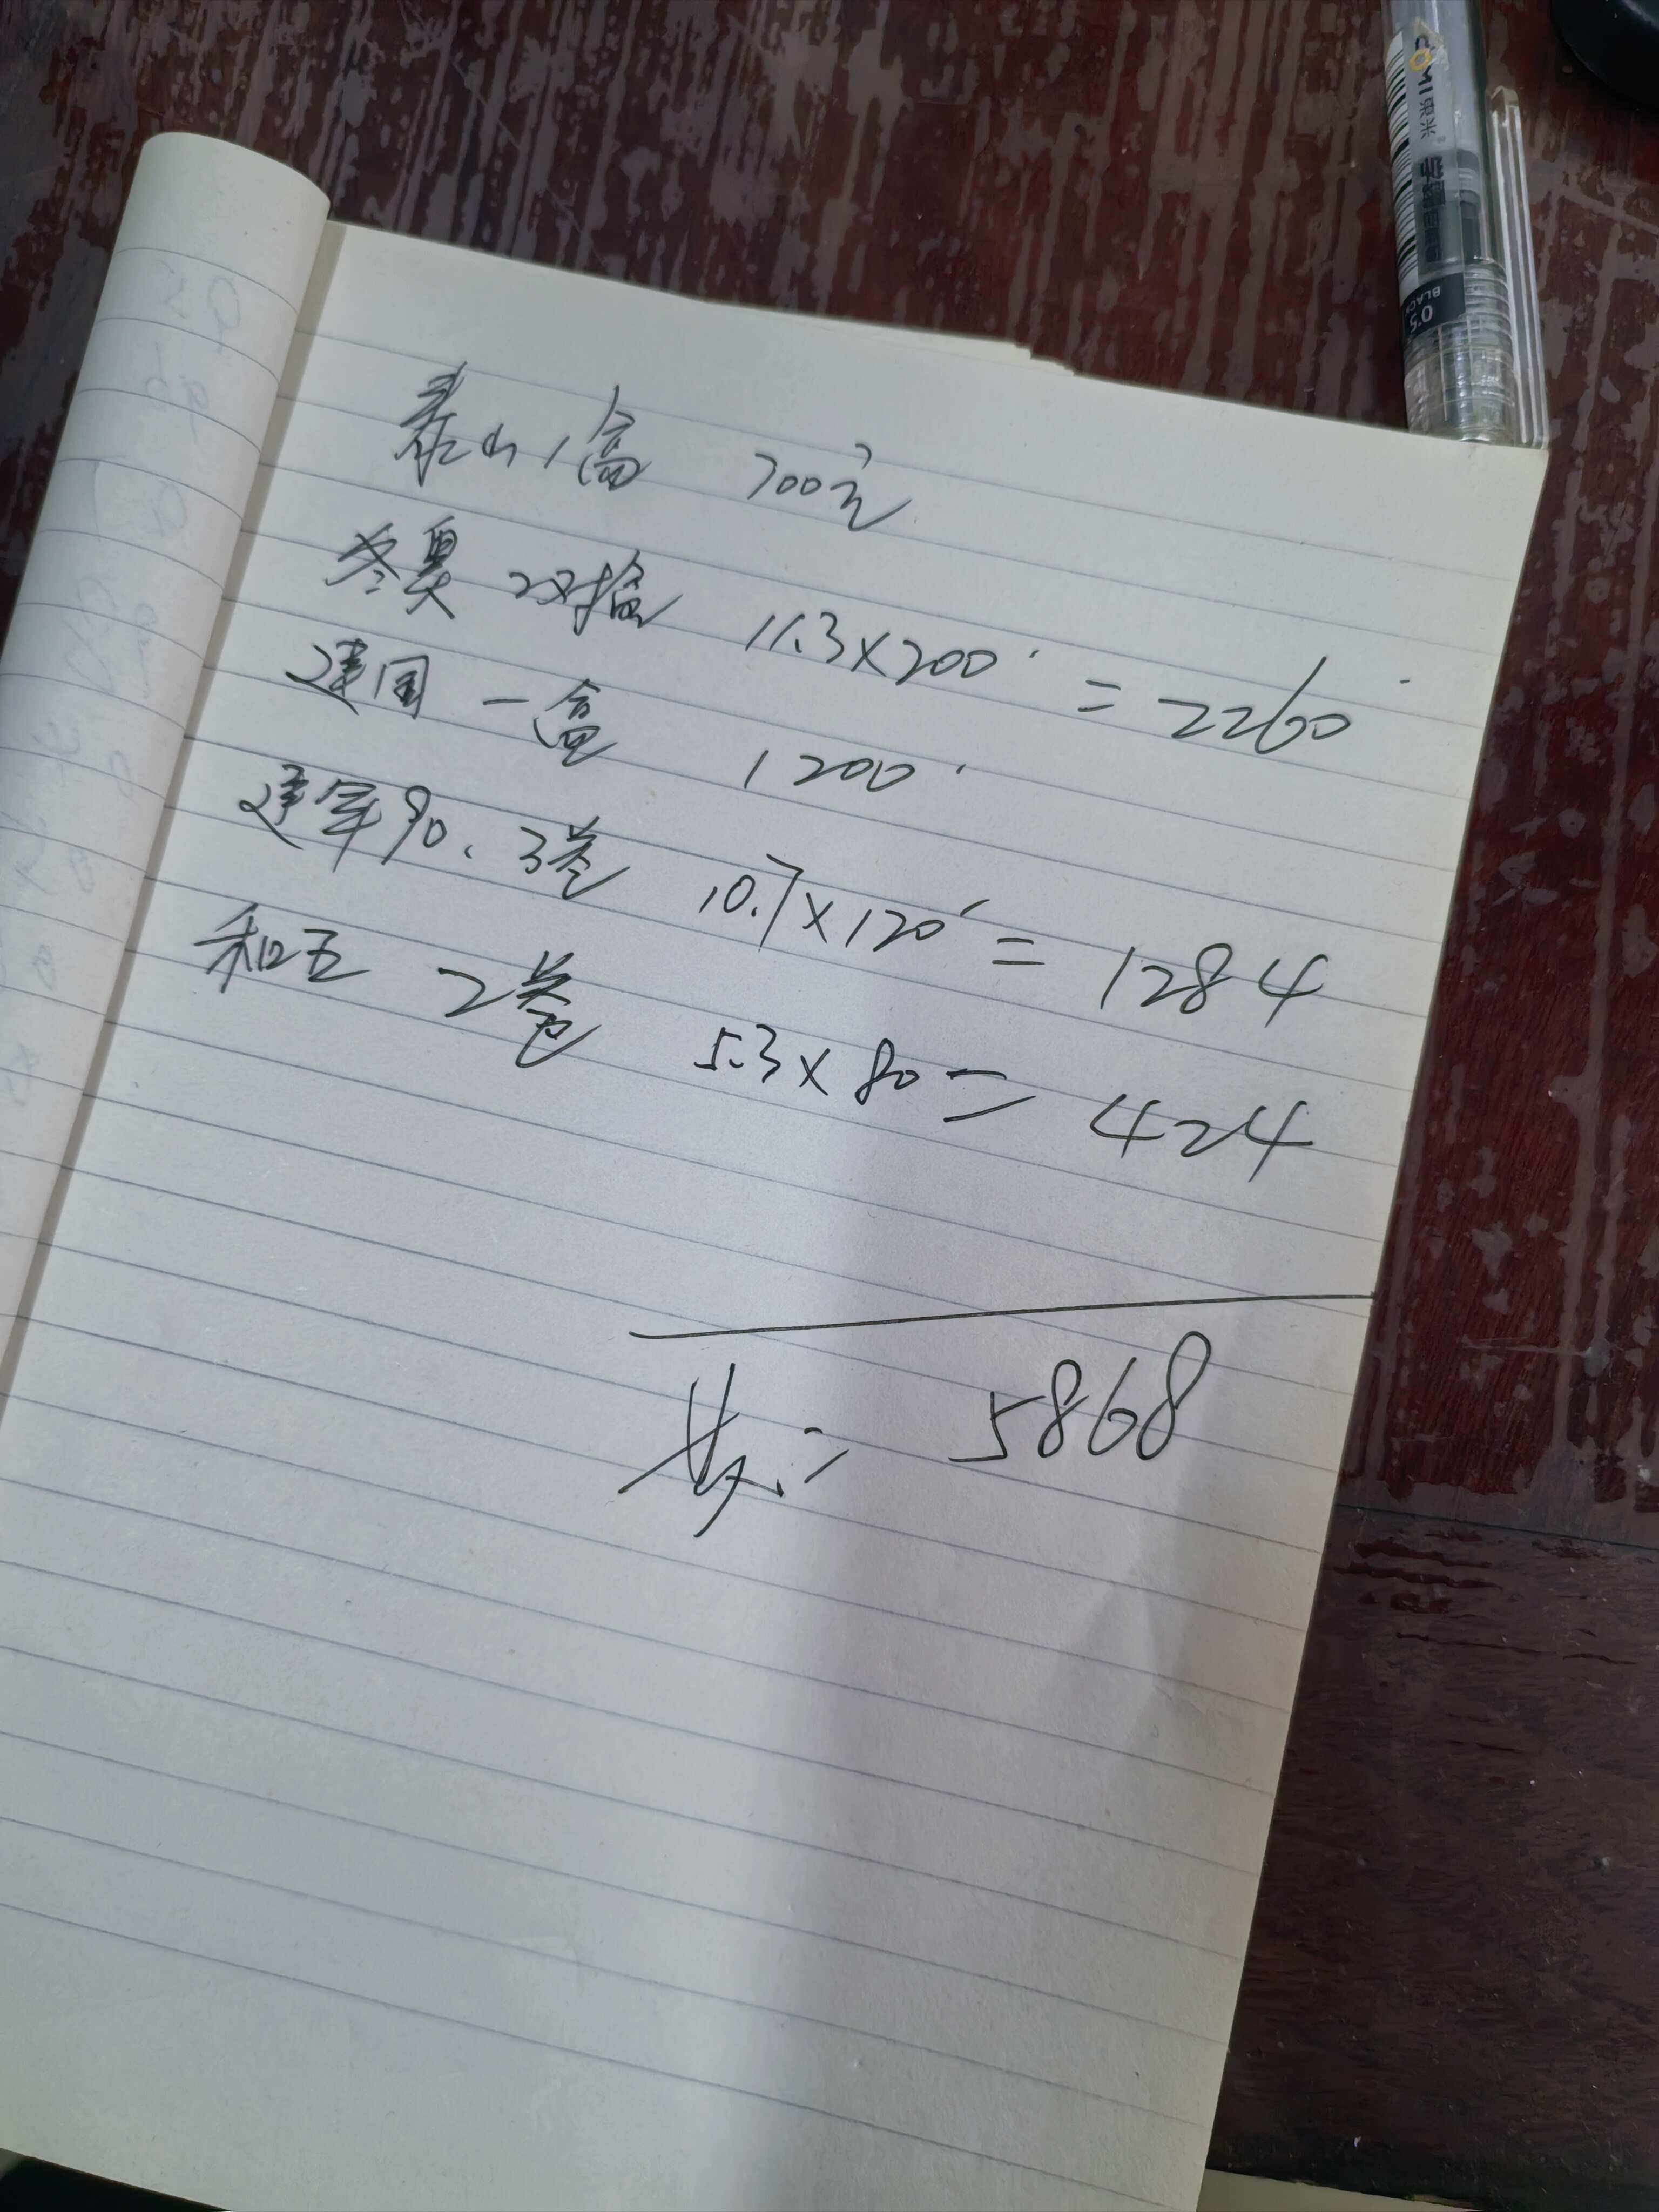 泰山1盒 700元
冬奥 2对挂盒 11.3×200 = 2260
建国 一盒 1200
建军90. 3卷 10.7×120 = 1284
和五 2卷 5.3×80 = 424
共: = 5868
QMI 東米
0.5
BLAC